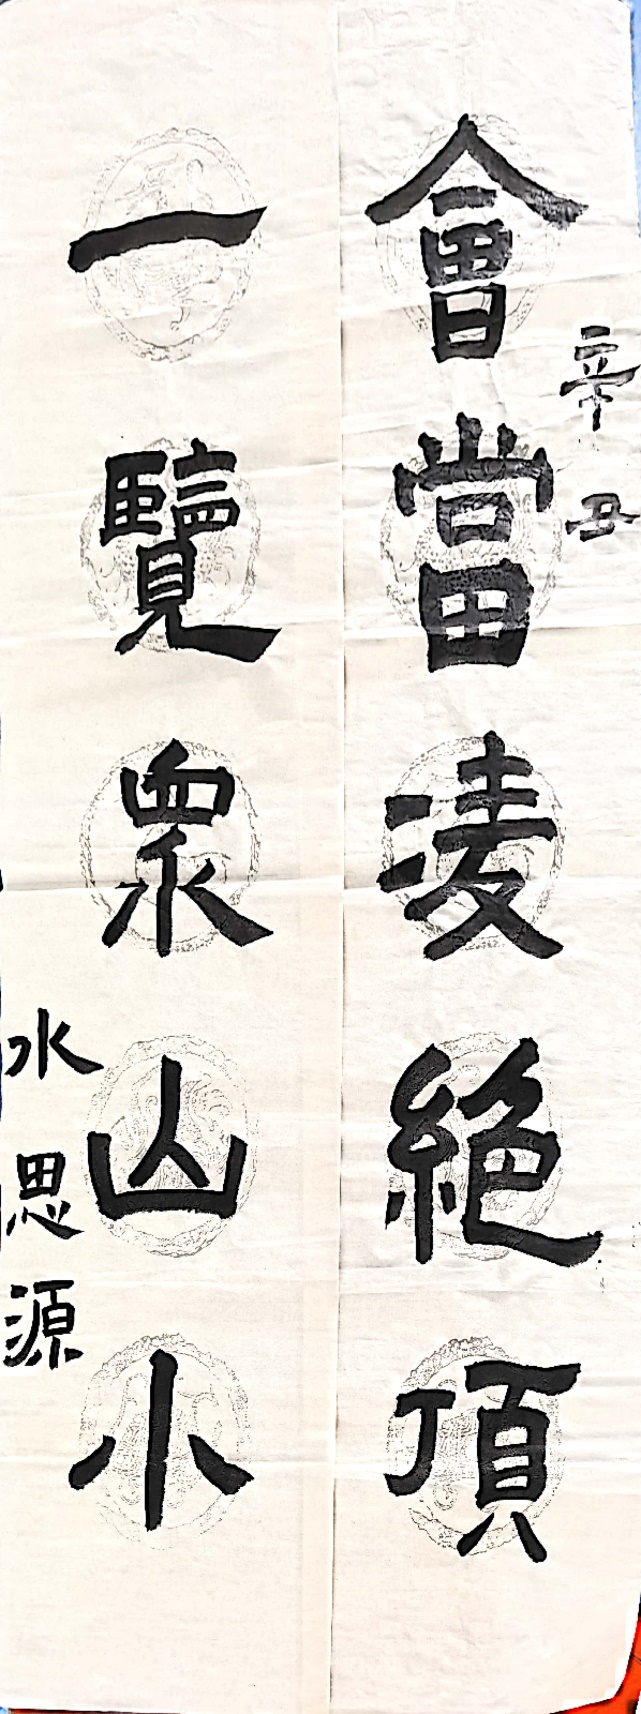 會當凌絕頂
辛丑
一覽眾山小
水思源